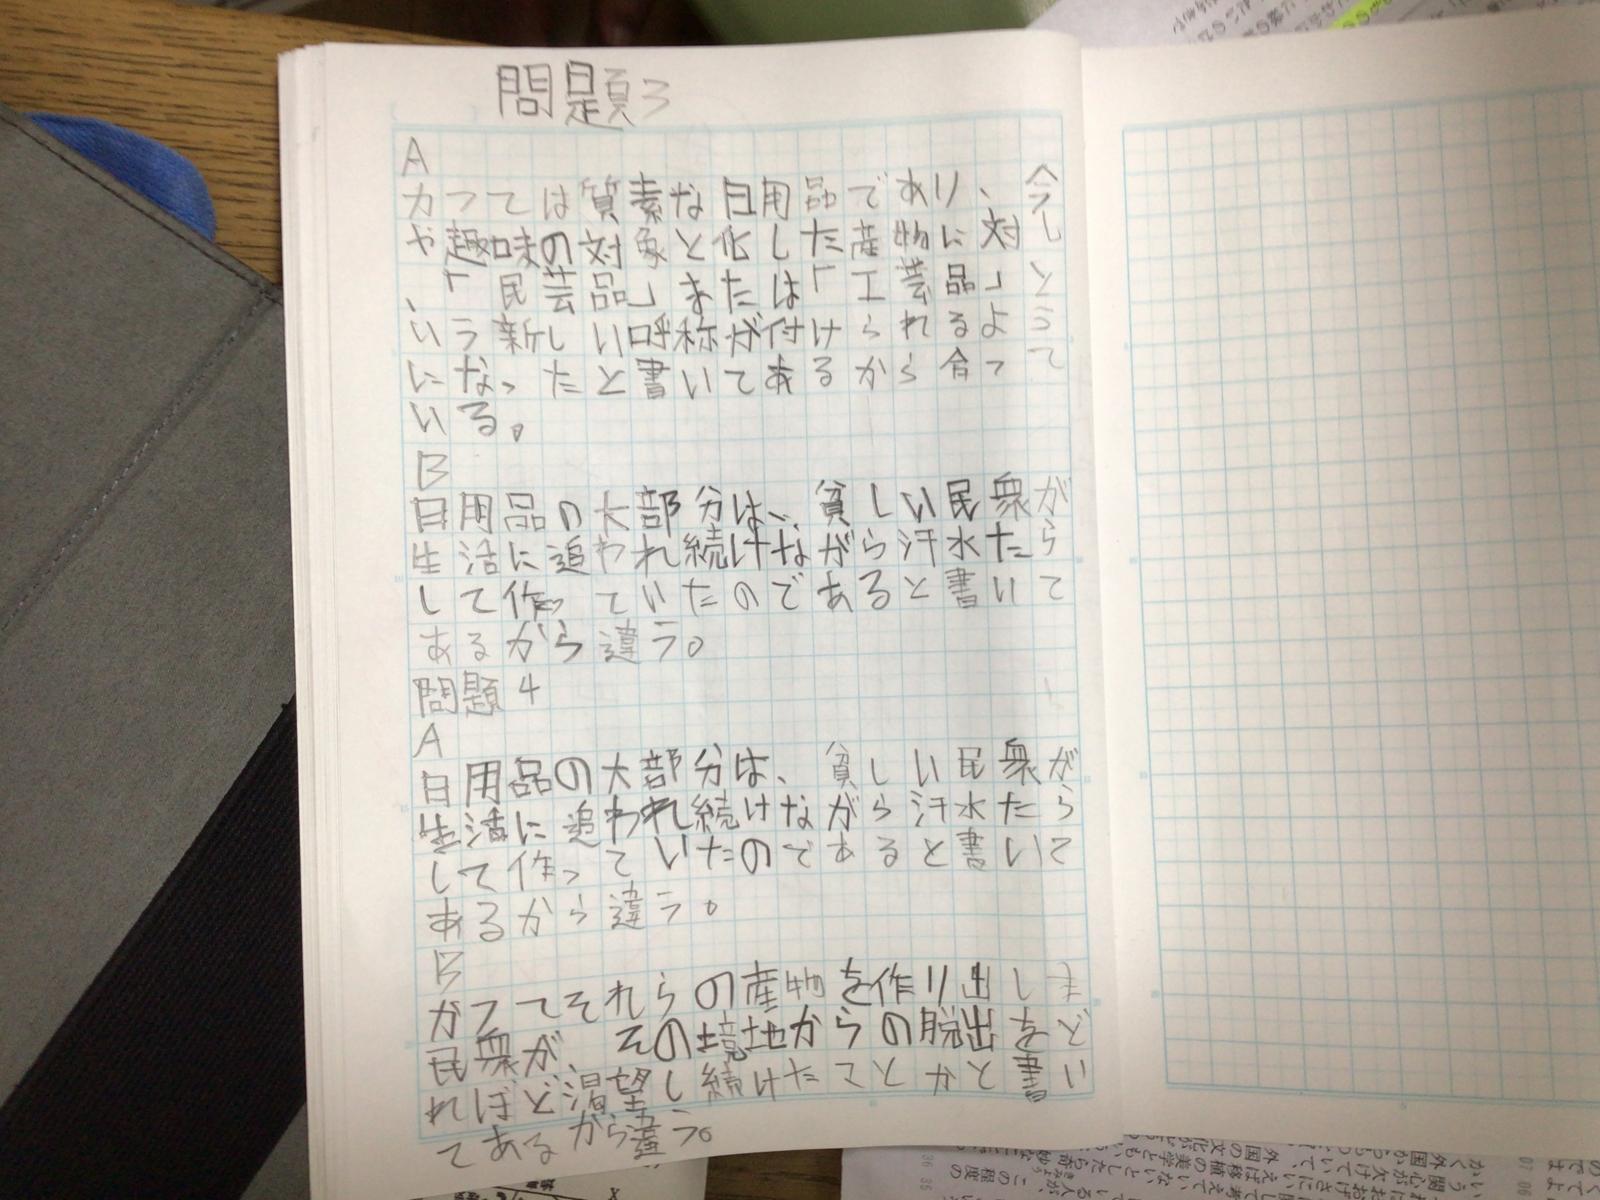 問題3
A
かつては質素な日用品であり、今
や趣味の対象と化した産物に対し
、「民芸品」または「工芸品」と
いう新しい呼称が付けられるよう
になったと書いてあるから合って
いる。
B
日用品の大部分は、貧しい民衆が
生活に追われ続けながら汗水たら
して作っていたのであると書いて
あるから違う。
問題4
A
日用品の大部分は、貧しい民衆が
生活に追われ続けながら汗水たら
して作っていたのであると書いて
あるから違う。
B
かつてそれらの産物を作り出しも
民衆が、その境地からの脱出をど
ればど渇望し続けたことかと書い
てあるから違う。